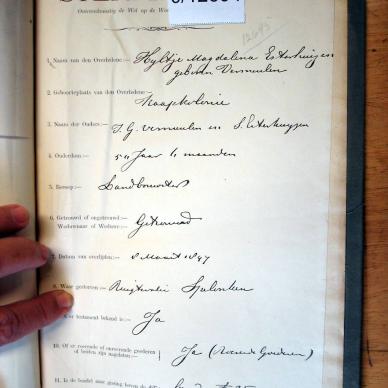 Overeenkomstig de Wet op de
12645
1. Naam van den Overledene:— Hyltje Magdalena Esterhuizen
geboren Vermeulen
2. Geboorteplaats van den Overledene:— Kaapkolonie
3. Namen der Ouders:— J. G. Vermeulen en S. Esterhuyzen
4. Ouderdom:— 54 Jaar 6 maanden
5. Beroep:— Landbouwster
6. Getrouwd of ongetrouwd:—
Weduwnaar of Weduwe:— Getrouwd
7. Datum van overlijden:— 8 Maart 1897
8. Waar gestorven:— Spelonken
testament bekend is:— Ja
10. Of er roerende of onroerende goederen
of beiden zijn nagelaten:— Ja (Roerende Goederen)
11. Is de boedel